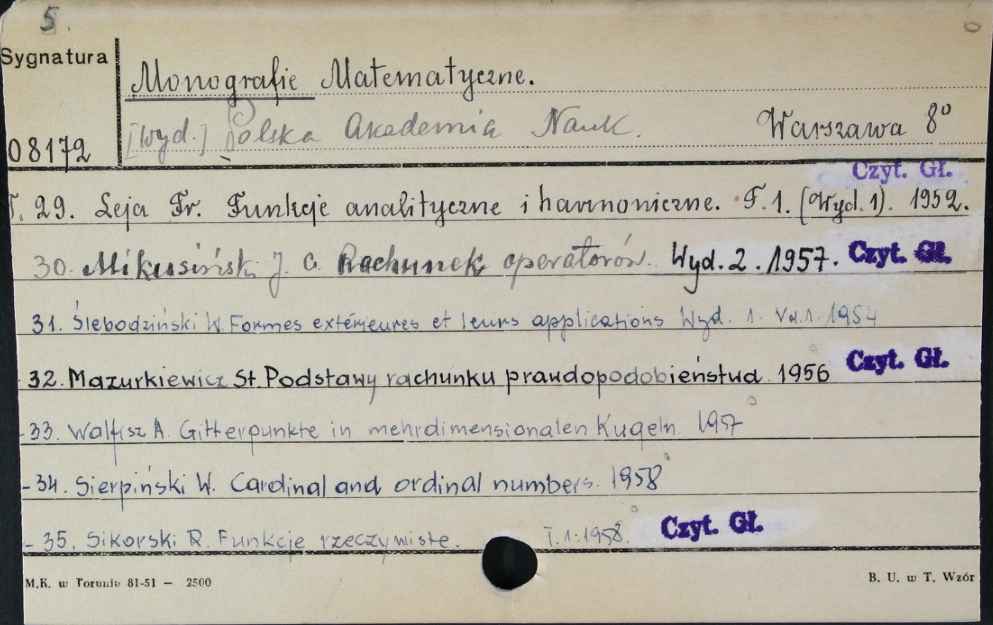 5.
Sygnatura
Monografie Matematyczne.
08172
[Wyd.] Polska Akademia Nauk. Warszawa 8°
Czyt. Gł.
T. 29. Leja Fr. Funkcje analityczne i harmoniczne. T. 1. (Wyd. 1). 1952.
30. Mikusiński J. G. Rachunek operatorów. Wyd. 2. 1957. Czyt. Gł.
31. Ślebodziński W. Formes extérieures et leurs applications Wyd. 1. Vol. 1. 1954
32. Mazurkiewicz St. Podstawy rachunku prawdopodobieństwa 1956 Czyt. Gł.
-33. Walfisz A. Gitterpunkte in mehrdimensionalen Kugeln. 1957
-34. Sierpiński W. Cardinal and ordinal numbers. 1958
-35. Sikorski R. Funkcje rzeczywiste. T. 1. 1958. Czyt. Gł.
M.K. w Toruniu 81-51 — 2500
B. U. w T. Wzór